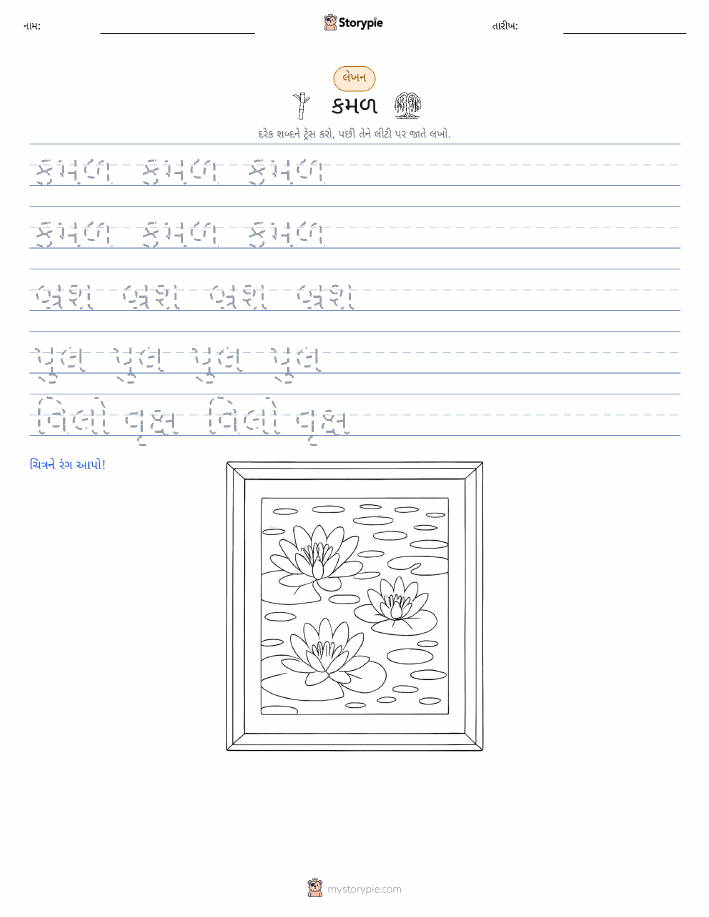 નામ:
Storypie
તારીખ:
લેખન
કમળ
દરેક શબ્દને ટ્રેસ કરો, પછી તેને લીટી પર જાતે લખો.
કમળ કમળ કમળ
કમળ કમળ કમળ
બ્રશ બ્રશ બ્રશ બ્રશ
પુલ પુલ પુલ પુલ
વિલો વૃક્ષ વિલો વૃક્ષ
ચિત્રને રંગ આપો!
mystorypie.com